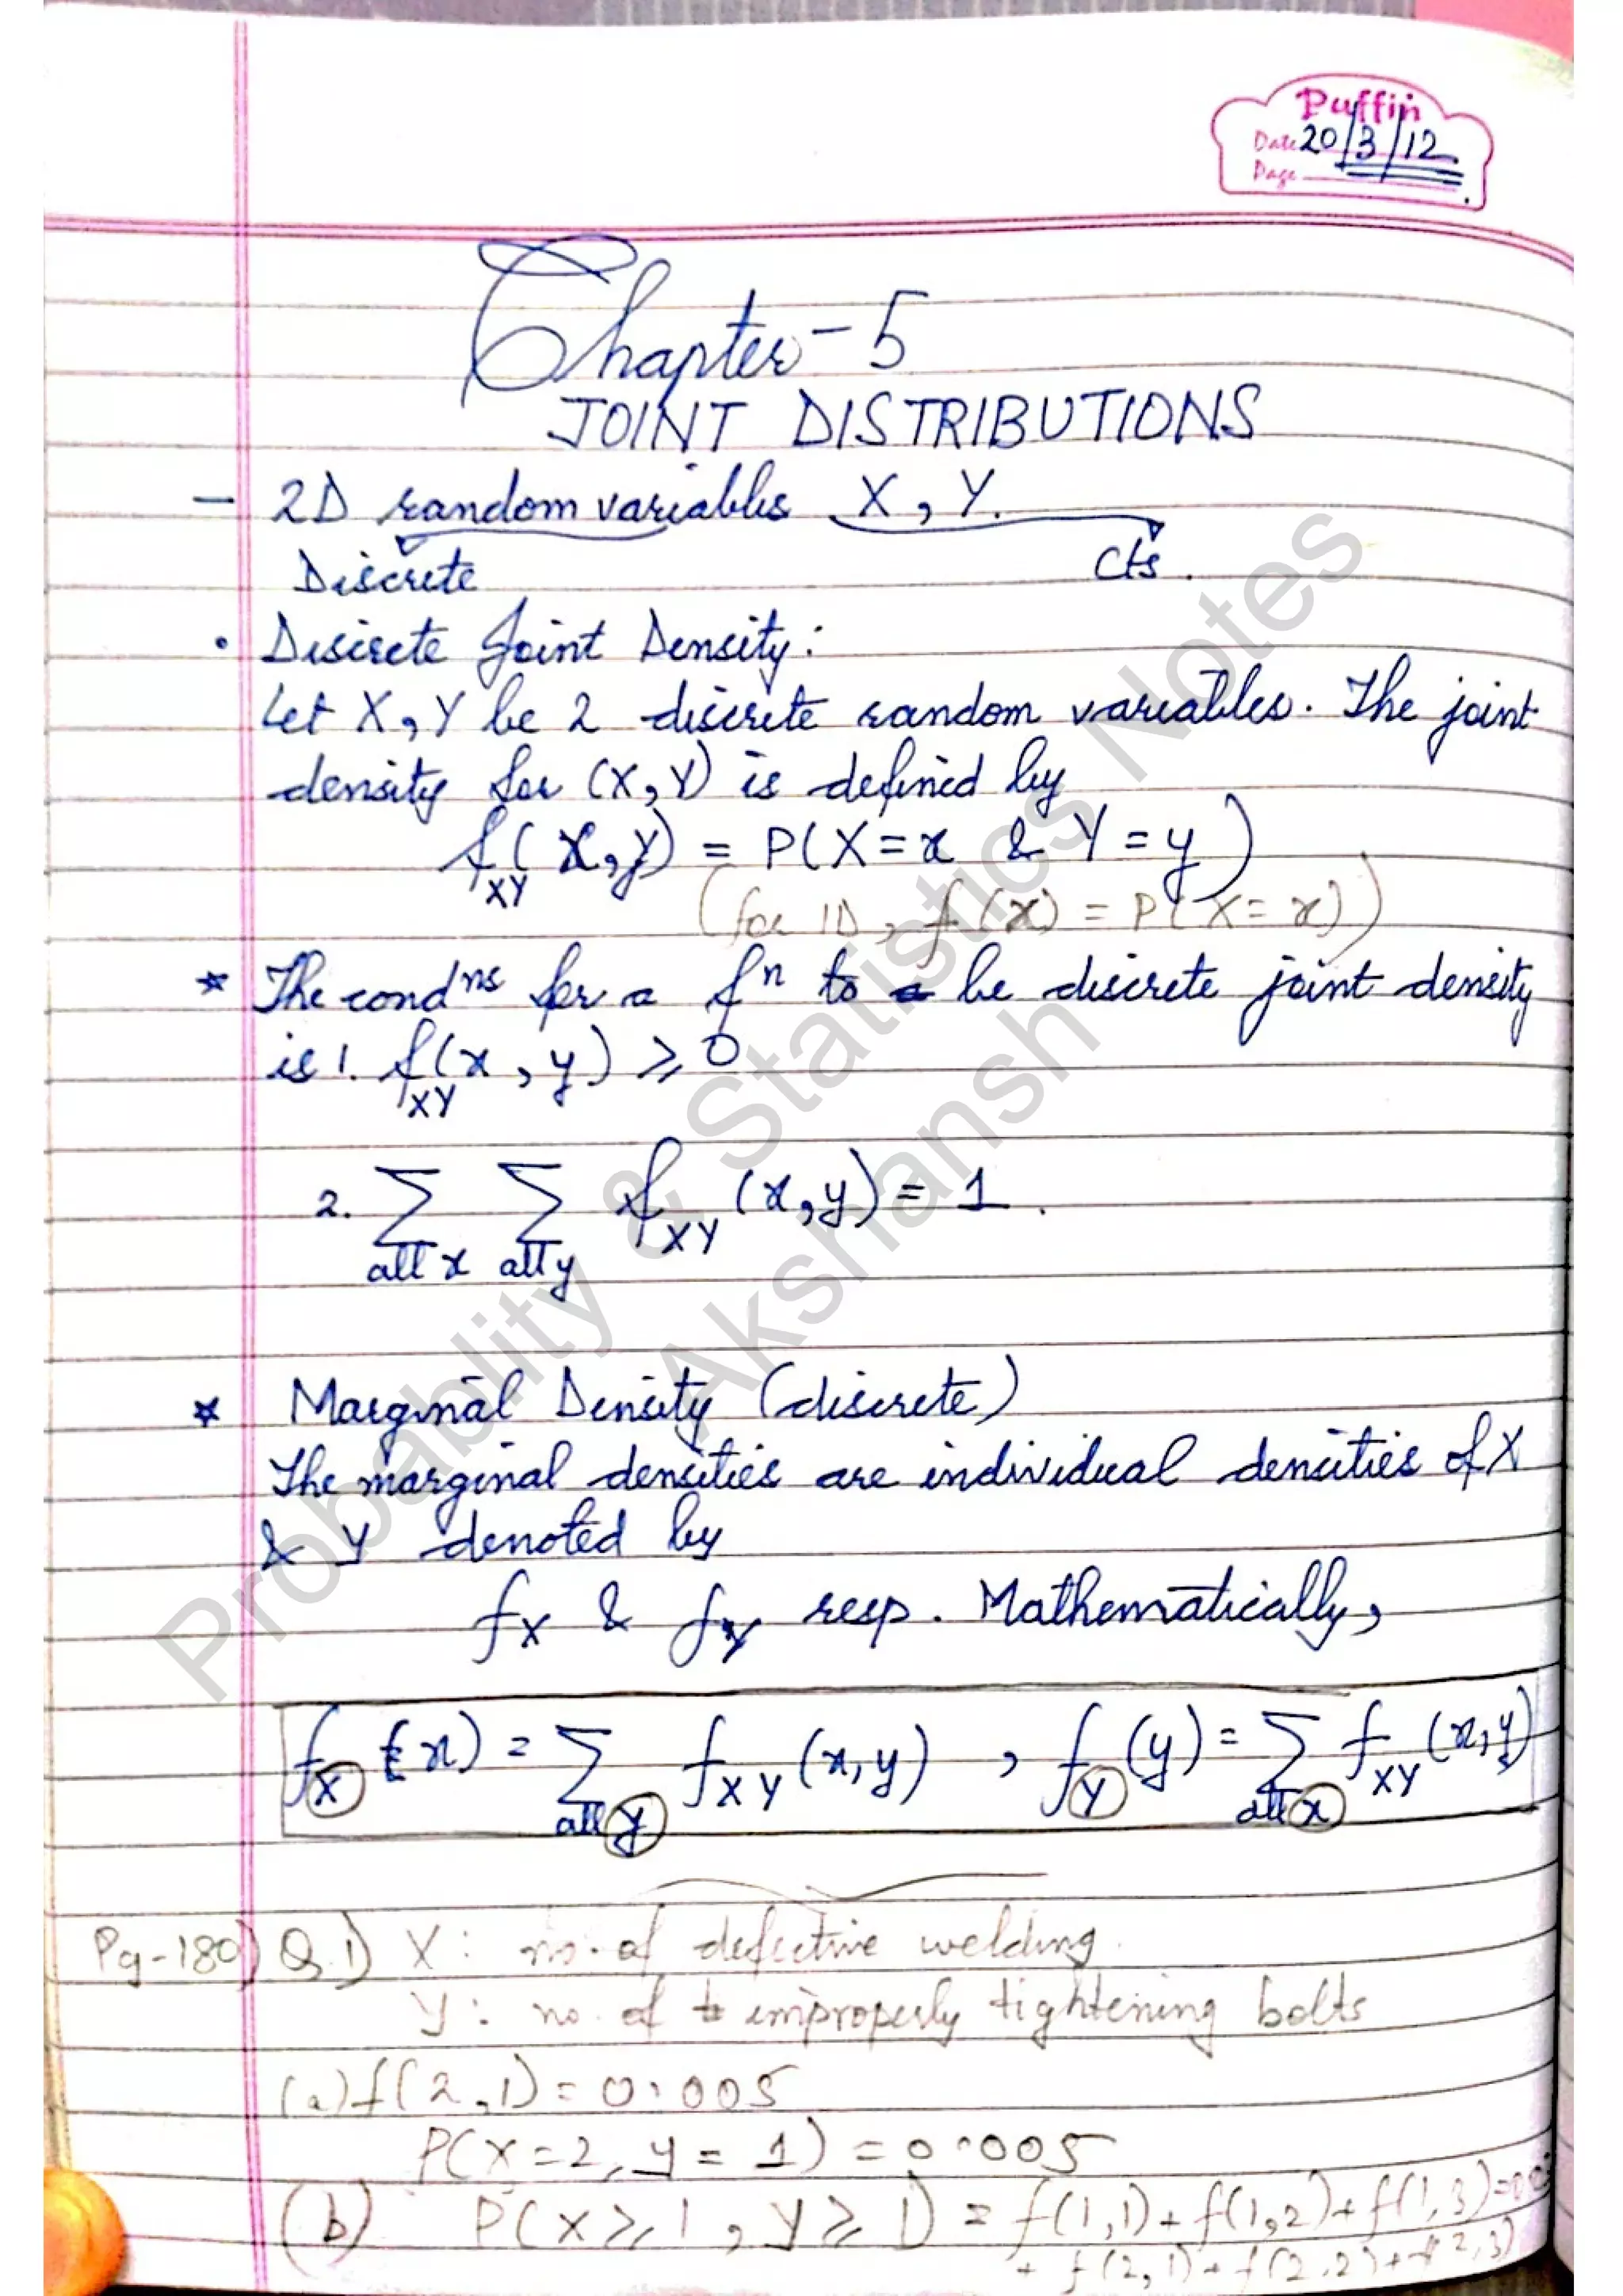 Puffin
Date 20/3/12
Page
Chapter-5
JOINT DISTRIBUTIONS
- 2D random variables X, Y.
Discrete Cts.
• Discrete Joint Density:
Let X, Y be 2 discrete random variables. The joint
density for (X, Y) is defined by
f_XY(x,y) = P(X=x & Y=y)
(for 1D, f(x) = P(X=x))
* The cond^ns for a f^n to be discrete joint density
is 1. f_XY(x,y) ≥ 0
2. ∑_all x ∑_all y f_XY(x,y) = 1.
* Marginal Density (discrete)
The marginal densities are individual densities of X
& Y denoted by
f_X & f_Y resp. Mathematically,
f_X(x) = ∑_all y f_XY(x,y) , f_Y(y) = ∑_all x f_XY(x,y)
Pg-180) Q.1) X: no. of defective welding
Y: no. of improperly tightening bolts
(a) f(2,1) = 0.005
P(X=2, Y=1) = 0.005
(b) P(X≥1, Y≥1) = f(1,1)+f(1,2)+f(1,3)
+ f(2,1)+f(2,2)+f(2,3)
Probability & Statistics Notes
Akshansh